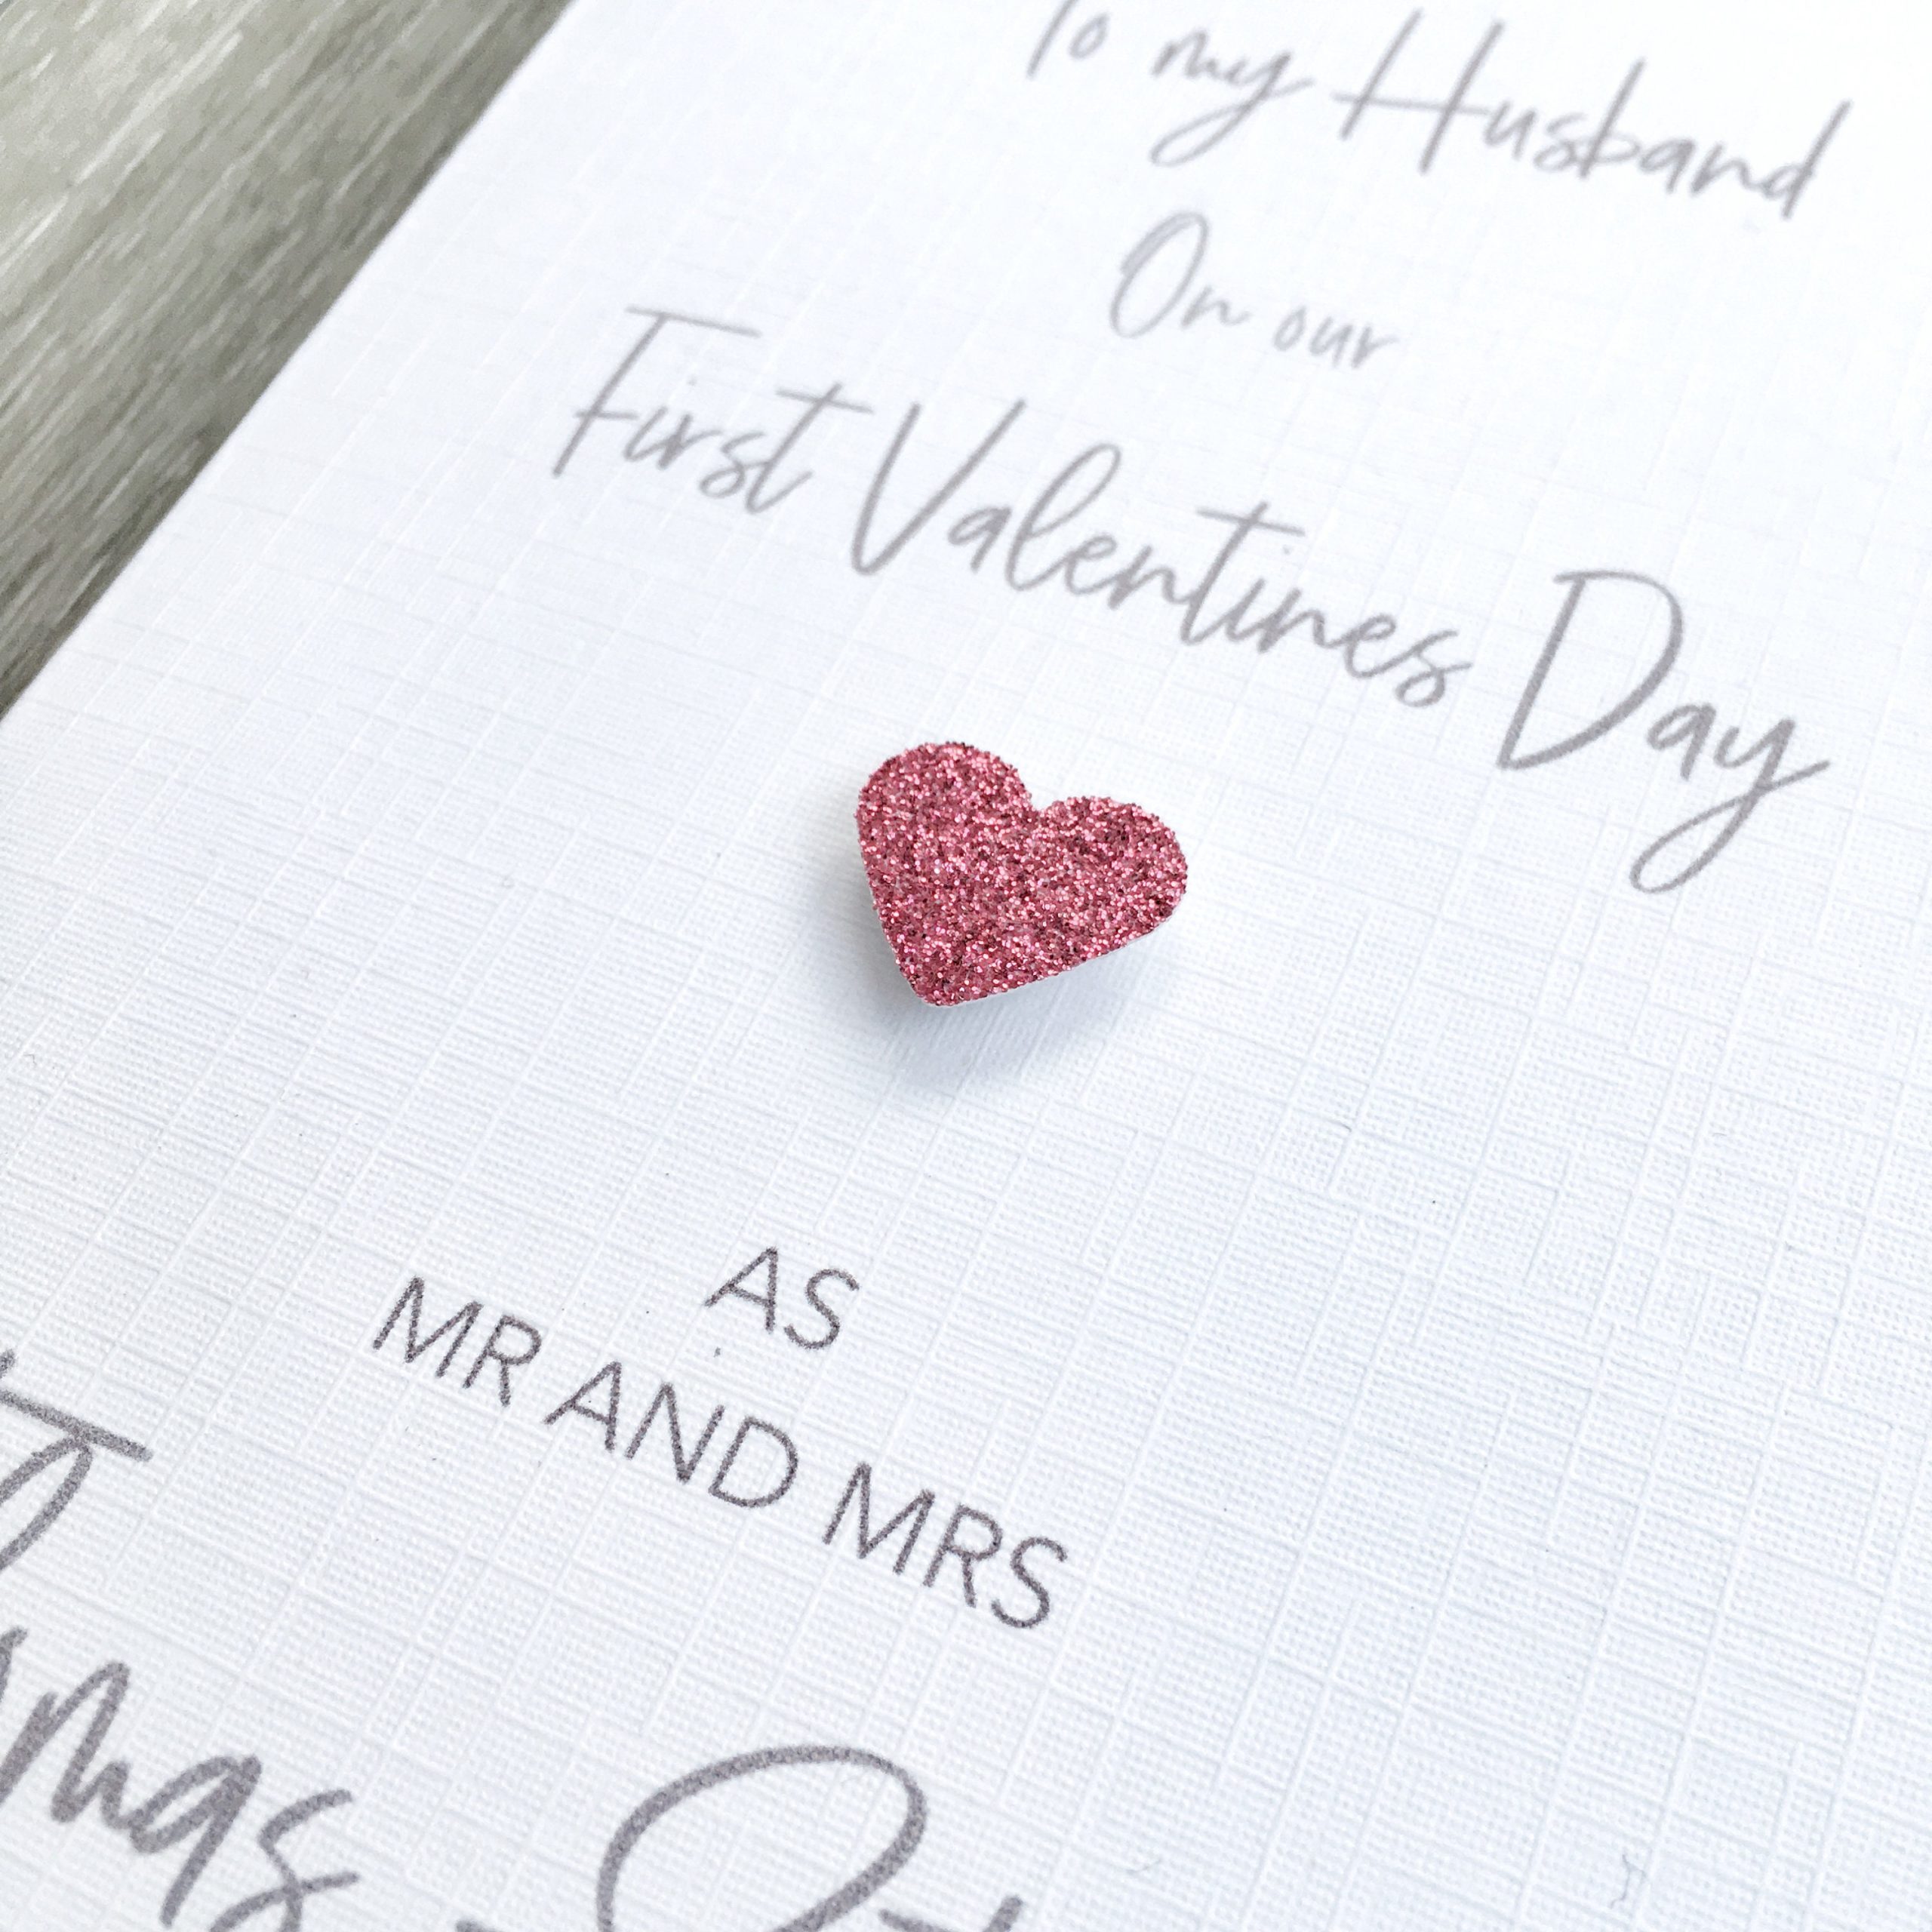 To my Husband
On our
First Valentines Day
AS
MR AND MRS